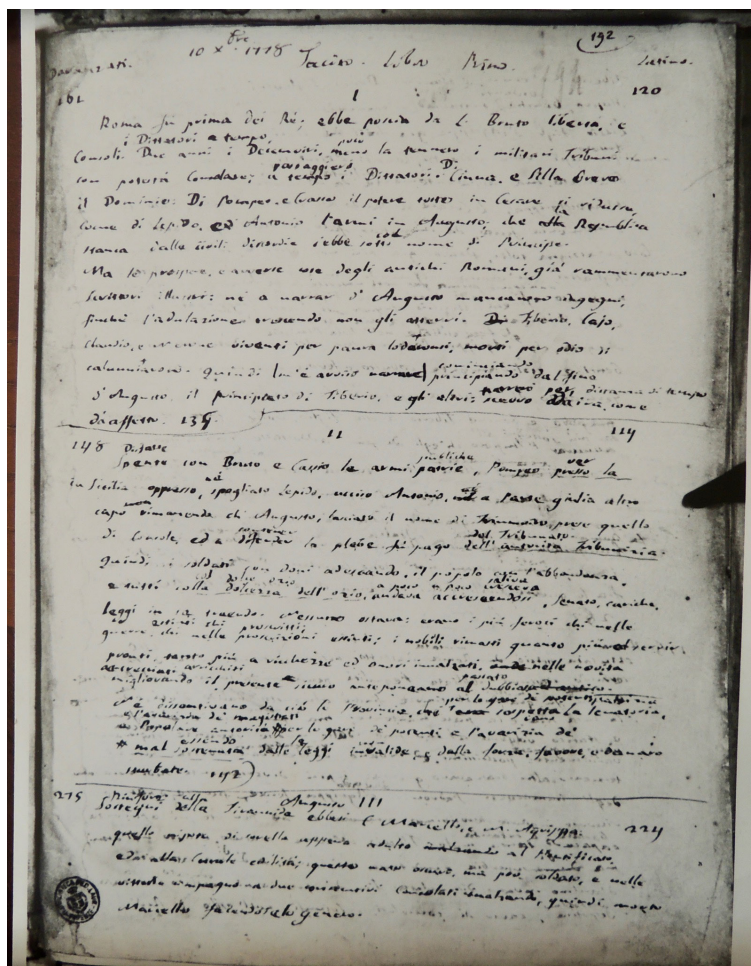 192
Davanzati. 10 Xbre 1778 Tacito. Libro Primo. Latino.
161 I 120
Roma fu prima dei Re; ebbe poscia da L. Bruto libertà, e
i Dittatori a tempo,
Consoli. Due anni i Decemviri, poco la tennero i militari Tribuni
con potestà Consolare; a tempo i Dittatori: Di Cinna, e Silla breve
passaggiero
il Dominio: Di Pompeo, e Crasso il potere tosto in Cesare si ridusse,
come di Lepido, ed Antonio l'armi in Augusto; che alla Repubblica
stanca dalle civili discordie sotto nome di Principe.
Ma le prospere, e avverse cose degli antichi Romani, già rammentarono
Scrittori illustri: né a narrar d'Augusto mancarono ingegni,
finché l'adulazione crescendo non gli asservì. Di Tiberio, Cajo,
Claudio, e Nerone viventi per paura morti per odio di
Quindi m'è avviso principiando dal fine
cominciando
d'Augusto, il principato di Tiberio, e gli altri; scevro d'ira, come
per distanza di tempo
d'affetto. 135
148 II 114
Spente con Bruto e Cassio le armi patrie, Pompeo presso la
pubbliche
Sicilia oppresso, spogliato Lepido, ucciso Antonio, a Parte giulia altro
capo rimanendo ch'Augusto, lasciato il nome di Triumviro, prese quello
di Console, ed a difender la plebe fu pago dell'autorità Tribunizia.
sostener del Tribunato
Quindi i soldati con doni adescando, il popolo con l'abbondanza,
e tutti colla dolcezza dell'ozio, andava accrescendosi, Senato, cariche,
a poco a poco
leggi in sé traendo. Nessuno ostava: erano i più feroci chi nelle
guerre, chi nelle proscrizioni estinti; i nobili rimasti quanto più al servir
pronti, tanto più a ricchezze ed onori innalzati, onde nelle novità
arricchiti
migliorando il presente sicuro anteponeano al dubbioso
passato
Né dissentivano da ciò le Provincie, sospetta la Senatoria,
e Popolare autorità per le gare dei potenti e l'avarizia de'
mal sostenuta dalle leggi invalide, e dalla forza, favore, e danaro
essendo
turbate. 192
275 Augusto III 224
Sostegni della Tirannide ebbesi C. Marcello, e M. Agrippa:
quello nipote di sorella appena adulto innalzando al Pontificato,
ed alla Curule edilità; questo nato oscuro, ma prò soldato, e nelle
vittorie compagno a due consecutivi Consolati innalzando, quindi morto
Marcello facendoselo genero.